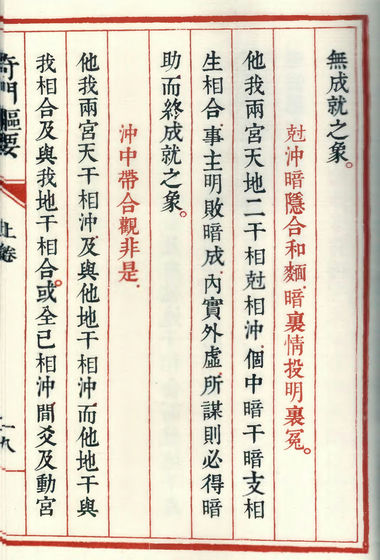 無成就之象。
尅沖暗隱合和麵.暗裏情投明裏冤。
他我兩宮天地二干相尅相沖.個中暗干暗支相
生相合.事主明敗暗成.內實外虛.所謀則必得暗
助而終成就之象。
沖中帶合觀非是.
他我兩宮天干相沖及與他地干相沖.而他地干與
我相合及與我地干相合。或全已相沖間爻及動宮
奇門樞要
上卷
一九